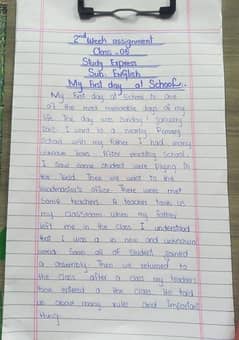 2nd Week assignment
Class - 05
Study Express
Sub: English
My First day at School..
My first day at School is one
of the most memorable days of my
life. The day was Sunday 1 January
I went to a nearby Primary
School with my father. I had many
unique. After reaching School.
I saw some student were playing in
the field. Then we went to the
headmaster's office. There were met
Some teachers. A teacher took us
my classroom when my father
left me in the class I understood
that I was a in new and unknown
world. Soon all of student joined
a assembly. Then we returned to
the class after a class my teachers
entered a the class. He told
us about many rules and important
thing.